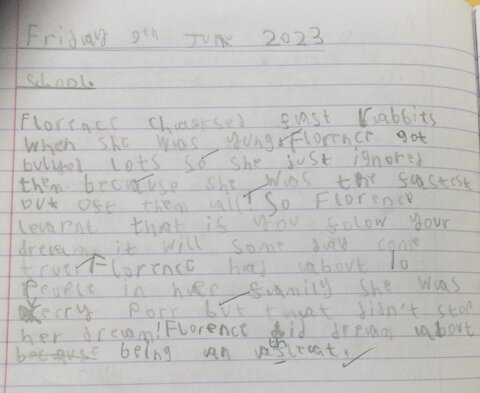 Friday 9th June 2023
School.
Florence chassed fast Rabbits
when she was yung. Florence got
bulyed lots so she just ignored
them because she was the fastest
out off them all! So Florence
learnt that if you folow your
dream it will some day come
true. Florence had about 10
People in her family she was
Very Porr but that didn't stop
her dream! Florence did dream about
because being an aslheat.